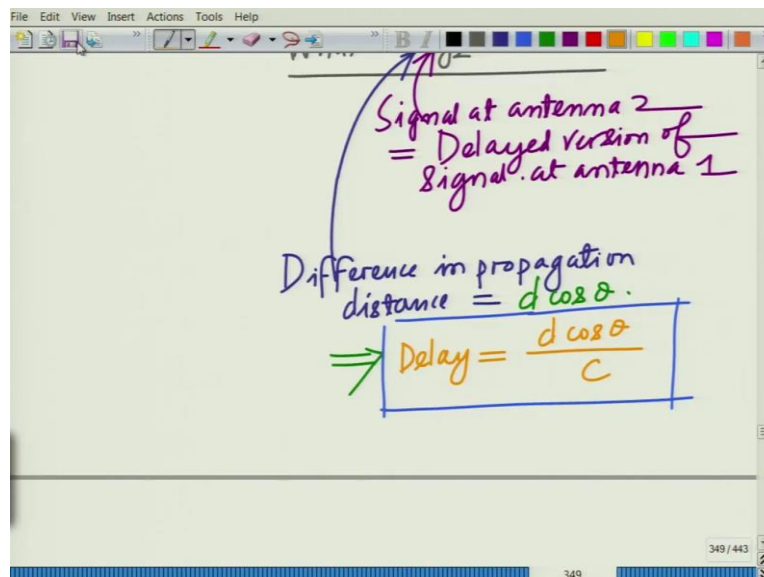 File Edit View Insert Actions Tools Help
Signal at antenna 2
= Delayed version of
signal at antenna 1
Difference in propagation
distance = d cos θ.
⇒ Delay = d cos θ / C
349 / 443
349